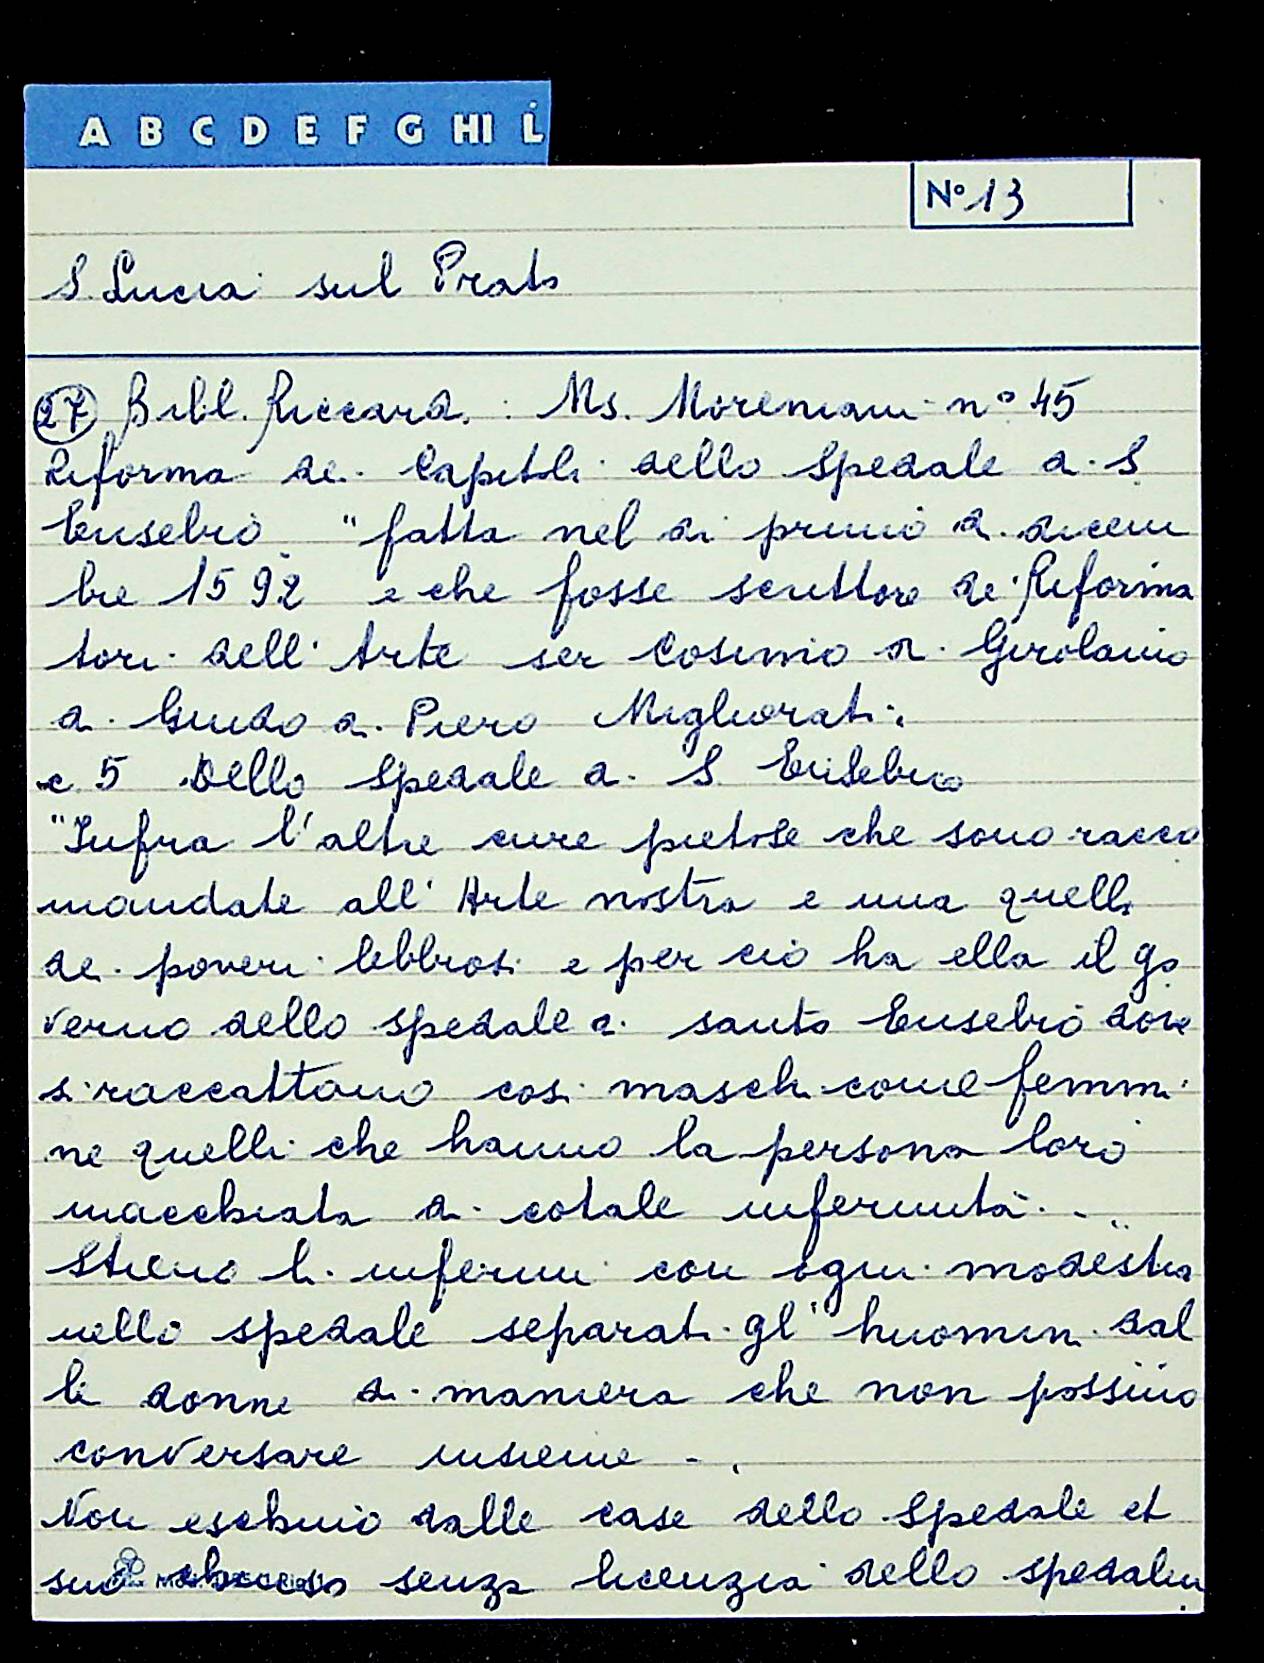 A B C D E F G HI L
N° 13
S. Lucia sul Prato
27 Bibl. Riccard. : Ms. Moreniani n° 45
Riforma de' Capitoli dello Spedale di S
Eusebio "fatta nel di primo di dicem
bre 1592 e che fosse scrittore de' Riforma
tori dell' Arte ser Cosimo di Girolamo
di Guido di Piero Migliorati.
c. 5 Dello Spedale di S. Eusebio
"Infra l'altre cure pietose che sono racco
mandate all' Arte nostra e una quella
de poveri lebbrosi e per ciò ha ella il go
verno dello spedale di santo Eusebio dove
si raccattano così maschi come femmi
ne quelli che hanno la persona loro
macchiata di cotale infermità ..
Stieno li infermi con ogni modestia
nello spedale separati gl' huomini dal
le donne di maniera che non possino
conversare insieme ..
Non eschino dalle case dello Spedale et
suo senza licenzia dello spedalin